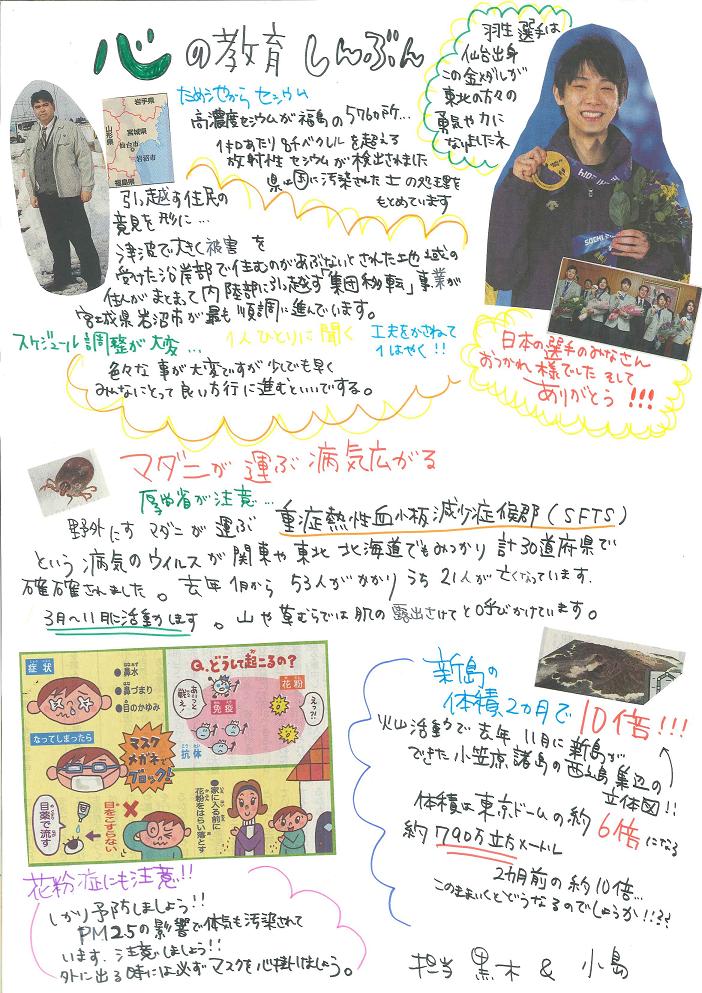 心の教育しんぶん
羽生選手は
仙台出身
この金メダルが
東北の方々の
勇気や力に
なりましたネ
ため池からセシウム
高濃度セシウムが福島の576か所…
1キロあたり8千ベクレルを超える
放射性セシウムが検出されました
県は国に汚染された土の処理を
もとめています
岩手県
山形県
宮城県
仙台市
岩沼市
福島県
引っ越す住民の
意見を形に…
津波で大きく被害を
受けた沿岸部で住むのがあぶないとされた地域の
住人がまとまって内陸部に引っ越す「集団移転」事業が
宮城県岩沼市が最も順調に進んでいます。
スケジュール調整が大変…
1人ひとりに聞く
工夫をかさねて
1はやく!!
色々な事が大変ですが少しでも早く
みんなにとって良い方行に進むといいでする。
SOCHI
日本の選手のみなさん
おつかれ様でした そして
ありがとう!!!
マダニが運ぶ病気広がる
厚労省が注意…
野外にすマダニが運ぶ 重症熱性血小板減少症候郡(SFTS)
という病気のウイルスが関東や東北 北海道でもみつかり 計30道府県で
確確されました。去年1月から 53人がかかり うち21人が亡くなっています.
3月〜11月に活動します。山や草むらでは肌の露出さけてと呼びかけています。
症状
●鼻水
●鼻づまり
●目のかゆみ
なってしまったら
マスク
メガネで
ブロック!
目薬で流す
目をこすらない
●家に入る前に
花粉をはらい落とす
Q.どうして起こるの?
花粉
免疫
抗体
新島の
体積2カ月で10倍!!!
火山活動で去年11月に新島が
できた小笠原諸島の西之島周辺の
立体図!!
体積は東京ドームの約6倍になる
約790万立方メートル
2カ月前の約10倍…
このままいくとどうなるのでしょうか!!??
花粉症にも注意!!
しかり予防しましょう!!
PM2.5の影響で体気も汚染されて
います. 注意しましょう!!
外に出る時には必ずマスクを心掛けましょう。
担当 黒木 & 小島